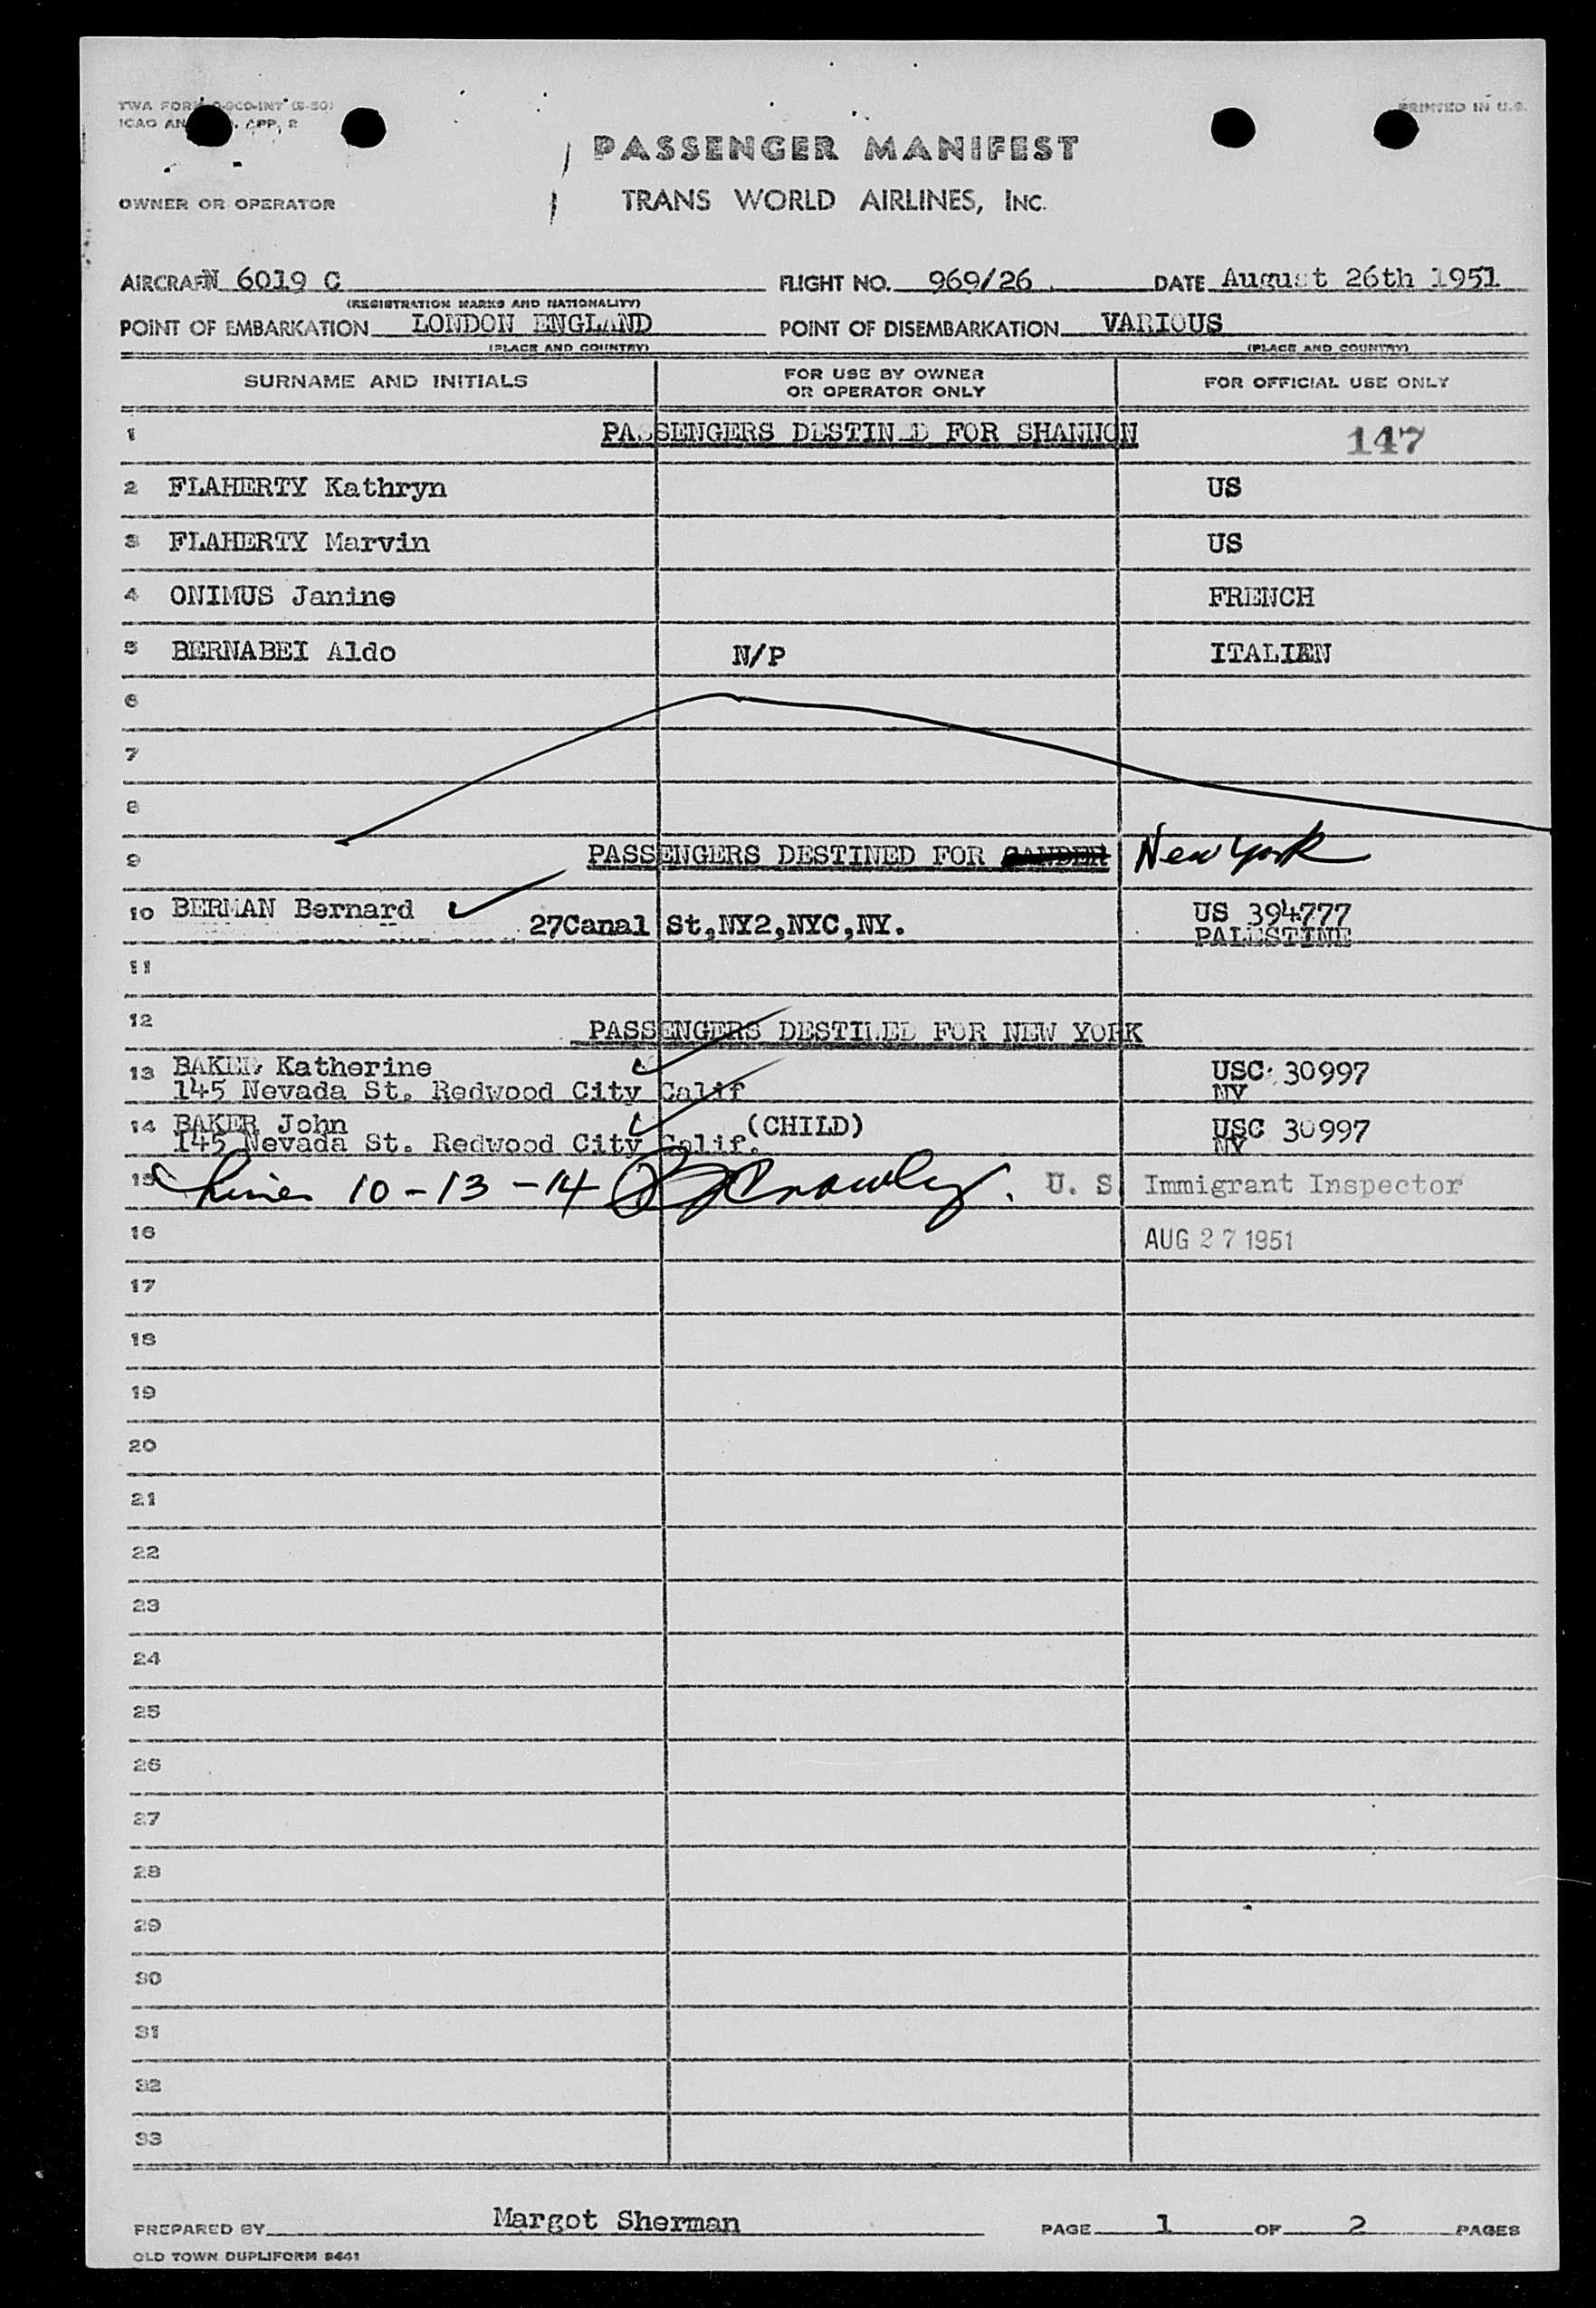 TWA FORM -900-INT (5-50)
ICAO AN . APP, 2
PRINTED IN U.S.
PASSENGER MANIFEST
OWNER OR OPERATOR
TRANS WORLD AIRLINES, INC.
AIRCRAFT N 6019 C FLIGHT NO. 969/26 DATE August 26th 1951
(REGISTRATION MARKS AND NATIONALITY)
POINT OF EMBARKATION LONDON ENGLAND POINT OF DISEMBARKATION VARIOUS
(PLACE AND COUNTRY) (PLACE AND COUNTRY)
SURNAME AND INITIALS FOR USE BY OWNER OR OPERATOR ONLY FOR OFFICIAL USE ONLY
1 PASSENGERS DESTINED FOR SHANNON 147
2 FLAHERTY Kathryn US
3 FLAHERTY Marvin US
4 ONIMUS Janine FRENCH
5 BERNABEI Aldo N/P ITALIAN
6
7
8
9 PASSENGERS DESTINED FOR GANDER New York
10 BERMAN Bernard 27Canal St,NY2,NYC,NY. US 394777
PALESTINE
11
12 PASSENGERS DESTINED FOR NEW YORK
13 BAKER Katherine USC 30997
145 Nevada St. Redwood City Calif NY
14 BAKER John (CHILD) USC 30997
145 Nevada St. Redwood City Calif. NY
15 Lines 10-13-14 Crowley. U. S. Immigrant Inspector
16 AUG 27 1951
17
18
19
20
21
22
23
24
25
26
27
28
29
30
31
32
33
PREPARED BY Margot Sherman PAGE 1 OF 2 PAGES
OLD TOWN DUPLIFORM 9441